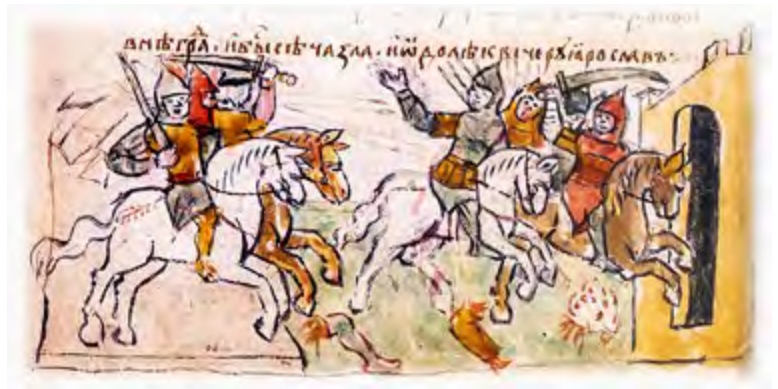 внѣ граⷣ · и быⷭ сѣча зла · и ѡдолѣ к вечерꙋ ꙗрославъ·